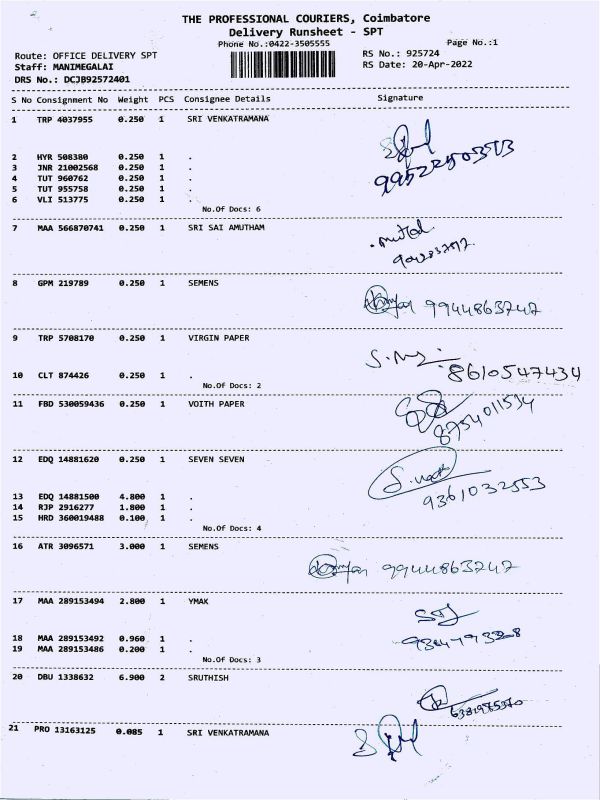 THE PROFESSIONAL COURIERS, Coimbatore
Delivery Runsheet - SPT
Phone No.:0422-3505555 Page No.:1
Route: OFFICE DELIVERY SPT RS No.: 925724
Staff: MANIMEGALAI RS Date: 20-Apr-2022
DRS No.: DCJB92572401
S No Consignment No Weight PCS Consignee Details Signature
1 TRP 4037955 0.250 1 SRI VENKATRAMANA
2 HYR 508380 0.250 1 .
3 JNR 21002568 0.250 1 .
4 TUT 960762 0.250 1 .
5 TUT 955758 0.250 1 .
6 VLI 513775 0.250 1 .
No.Of Docs: 6
7 MAA 566870741 0.250 1 SRI SAI AMUTHAM
8 GPM 219789 0.250 1 SEMENS
9944863747
9 TRP 5708170 0.250 1 VIRGIN PAPER
10 CLT 874426 0.250 1 . 8610547434
No.Of Docs: 2
11 FBD 530059436 0.250 1 VOITH PAPER
8754011594
12 EDQ 14881620 0.250 1 SEVEN SEVEN
13 EDQ 14881500 4.800 1 . 9361032553
14 RJP 2916277 1.800 1 .
15 HRD 360019488 0.100 1 .
No.Of Docs: 4
16 ATR 3096571 3.000 1 SEMENS
9944863747
17 MAA 289153494 2.800 1 YMAK
18 MAA 289153492 0.960 1 .
19 MAA 289153486 0.200 1 .
No.Of Docs: 3
20 DBU 1338632 6.900 2 SRUTHISH
21 PRO 13163125 0.085 1 SRI VENKATRAMANA